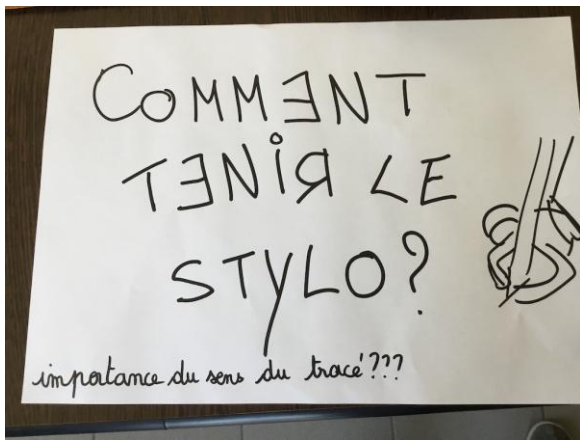 COMMENT
TENIR LE
STYLO?
importance du sens du tracé???